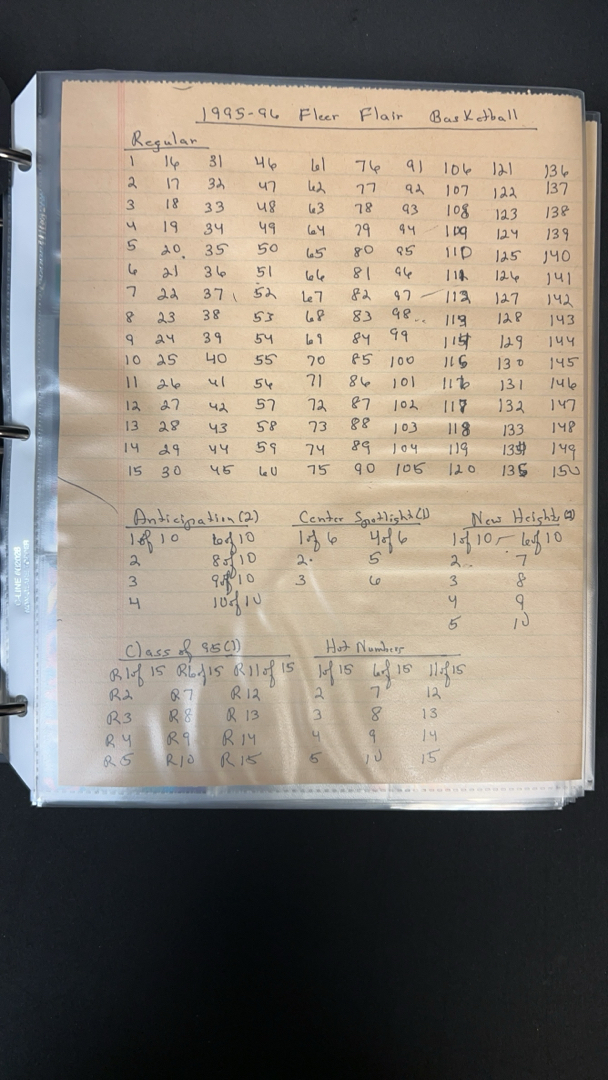 1995-96 Fleer Flair Basketball
Regular
1 16 31 46 61 76 91 106 121 136
2 17 32 47 62 77 92 107 122 137
3 18 33 48 63 78 93 108 123 138
4 19 34 49 64 79 94 109 124 139
5 20. 35 50 65 80 95 110 125 140
6 21 36 51 66 81 96 111 126 141
7 22 37 52 67 82 97 112 127 142
8 23 38 53 68 83 98 113 128 143
9 24 39 54 69 84 99 114 129 144
10 25 40 55 70 85 100 115 130 145
11 26 41 56 71 86 101 116 131 146
12 27 42 57 72 87 102 117 132 147
13 28 43 58 73 88 103 118 133 148
14 29 44 59 74 89 104 119 134 149
15 30 45 60 75 90 105 120 135 150
Anticipation (2) Center Spotlight (1) New Heights (2)
1 of 10 6 of 10 1 of 6 4 of 6 1 of 10 6 of 10
2 8 of 10 2 5 2 7
3 9 of 10 3 6 3 8
4 10 of 10 4 9
5 10
Class of 95 (1) Hot Numbers
R1 of 15 R6 of 15 R11 of 15 1 of 15 6 of 15 11 of 15
R2 R7 R12 2 7 12
R3 R8 R13 3 8 13
R4 R9 R14 4 9 14
R5 R10 R15 5 10 15